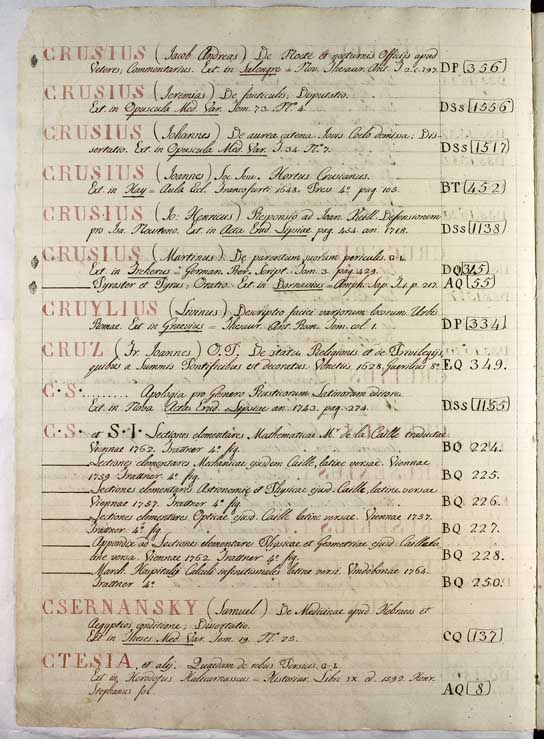 CRUSIUS (Jacob Andreas) De Nocte et nocturnis Officijs apud
Veteres; Commentarius. Ext. in Salengre = Nov. Thesaur. Ant. T. 2. c. 797. DP (356)
CRUSIUS (Jeremias) De fonticulis; Disputatio.
Ext. in Opuscula Med. Var. Tom. 73. N.º 4. DSs (1556)
CRUSIUS (Johannes) De aurea catena Iovis Coelo demissa; Dis-
sertatio. Ext. in Opuscula Med. Var. T. 34. N.º 7. DSs (1517)
CRUSIUS (Joannes) Hortus Crusianus.
Ext. in Hay = Aula Eccl. Francofurt 1648. 4.º pag. 105. BT (452)
CRUSIUS (Jo: Henricus) Responsio ad Joan. Keill. Defensionem
pro Isa. Newtono. Ext. in Acta Erud. Lipsiae pag. 454. an. 1718. DSs (1138)
CRUSIUS (Martinus) De parentum suorum periculis. G-L.
Ext. in Freherus = German. Rer. Script. Tom. 3. pag. 429. DQ (315)
Tyraster et Pyrus; Oratio. Ext. in Dornavius = Amph. Sap. T. 1. p. 212. AQ (55)
CRUYLIUS (Livinus) Descriptio faciei variorum locorum Urbis
Romae. Ext. in Graevius = Thesaur. Ant. Rom. Tom. col. 1. DP (334)
CRUZ (Fr. Joannes) O. P. De statu Religionis et de Privilegijs,
quibus a Summis Pontificibus est decoratus. Venetiis 1628. Guerilius 8.º EQ 349.
C. S. ........ Apologia pro Genere Rusticorum Latinorum
Ext. in Nova Acta Erud. Lipsiae an. 1743. pag. 274. DSs (1155)
C. S. et S. I. Lectiones elementares Mathematicae M.r de la Caille traductae
Viennae 1762. Trattner 4.º fig. BQ 224.
Lectiones elementares Mechanicae ejusdem Caille, latine versae. Viennae
1759. Trattner 4.º fig. BQ 225.
Lectiones elementares Astronomiae et Physicae ejusd. Caille, latine versae
Viennae 1757. Trattner 4.º fig. BQ 226.
Lectiones elementares Opticae ejusd. Caille latine versae. Viennae 1757.
Trattner 4.º fig. BQ 227.
Appendix ad Lectiones elementares Physicae et Geometriae ejusd. Caille la-
tine versa. Viennae 1762. Trattner 4.º fig. BQ 228.
Calculi infinitesimales latine versi. Vindobonae 1764.
Trattner 4.º BQ 250.
CSERNANSKY (Samuel) De Medicinae apud Hebraeos et
Aegyptios conditione; Dissertatio.
Ext. in Theses Med. Var. Tom. 19. N.º 25. CQ (137)
CTESIA, et alij. Quaedam de rebus Persicis. G-L.
Ext. in Herodotus Halicarnasseus = Historiar. Libri IX. ed. 1592. Henr.
Stephanus fol. AQ (8)